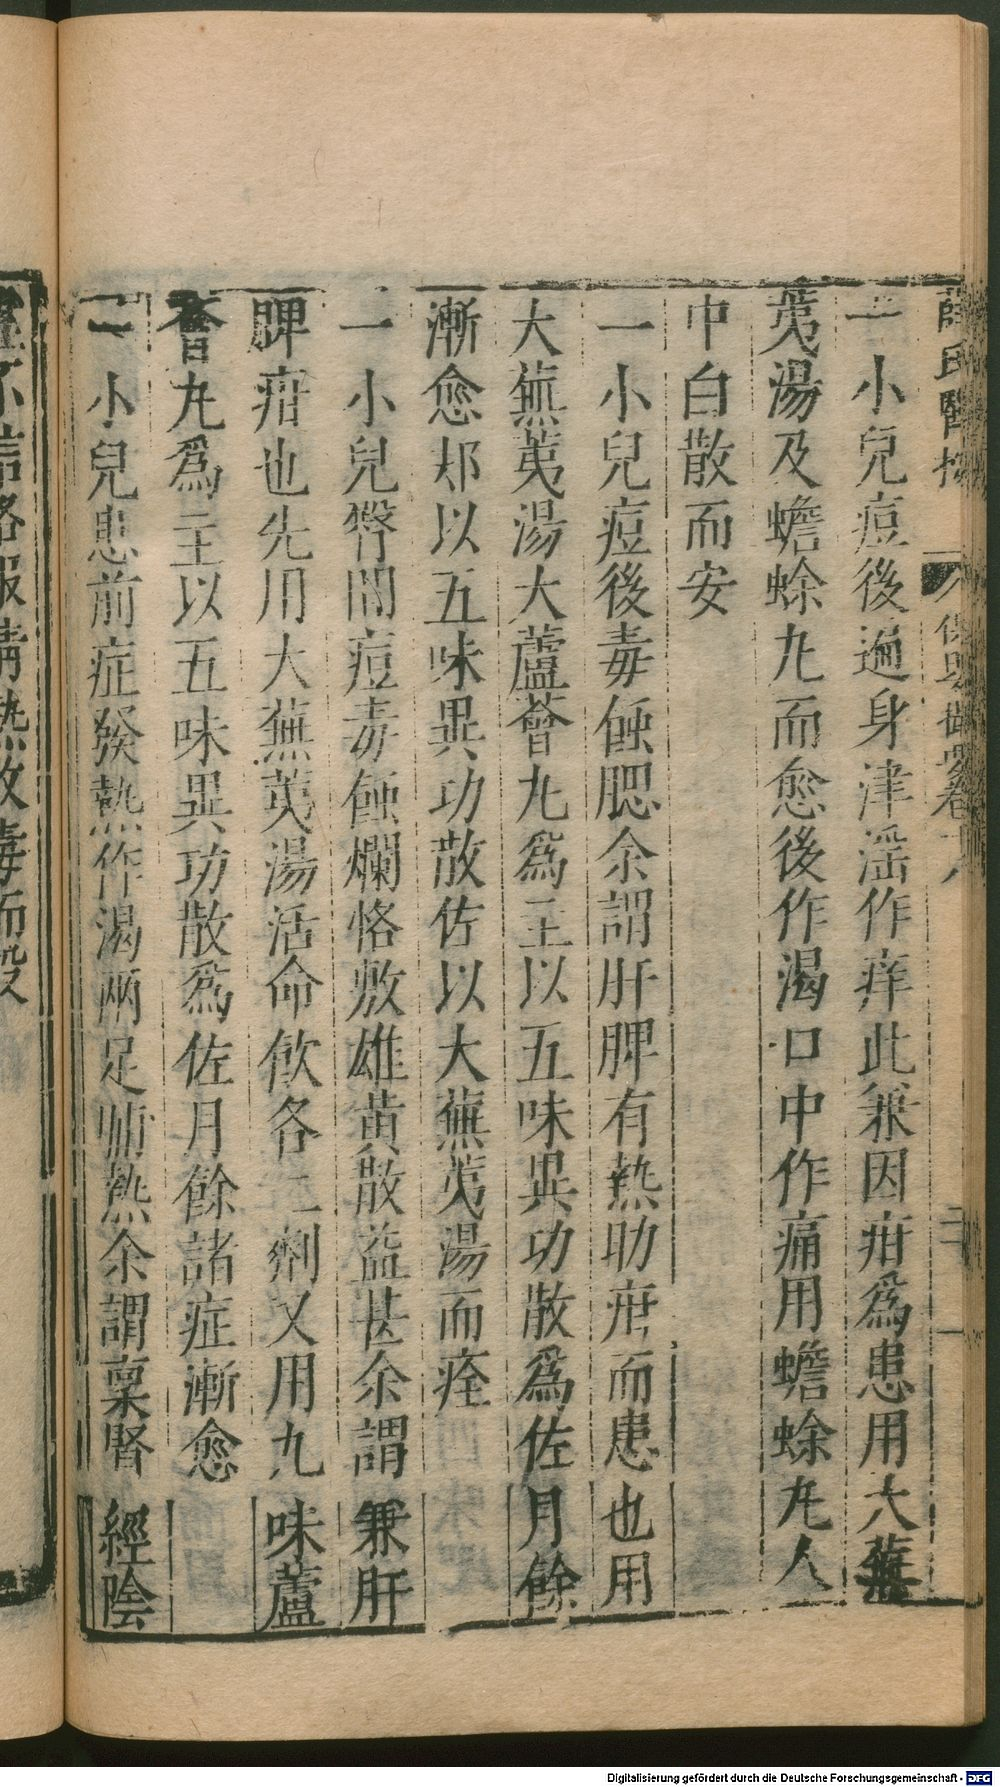 薛氏醫按
一小兒痘後遍身津淫作痒此兼因疳爲患用大蕪
荑湯及蟾蜍丸而愈後作渴口中作痛用蟾蜍丸人
中白散而安
一小兒痘後毒蝕腮余謂肝脾有熱助疳而患也用
大蕪荑湯大蘆薈丸爲主以五味異功散爲佐月餘
漸愈却以五味異功散佐以大蕪荑湯而痊
一小兒臀間痘毒蝕爛恪敷雄黄散益甚余謂兼肝
脾疳也先用大蕪荑湯活命飲各二劑又用九味蘆
薈丸爲主以五味異功散爲佐月餘諸症漸愈
一小兒患前症發熱作渴兩足晡熱余謂稟腎經陰
信恪服清熱敗毒而歿
Digitalisierung gefördert durch die Deutsche Forschungsgemeinschaft - DFG